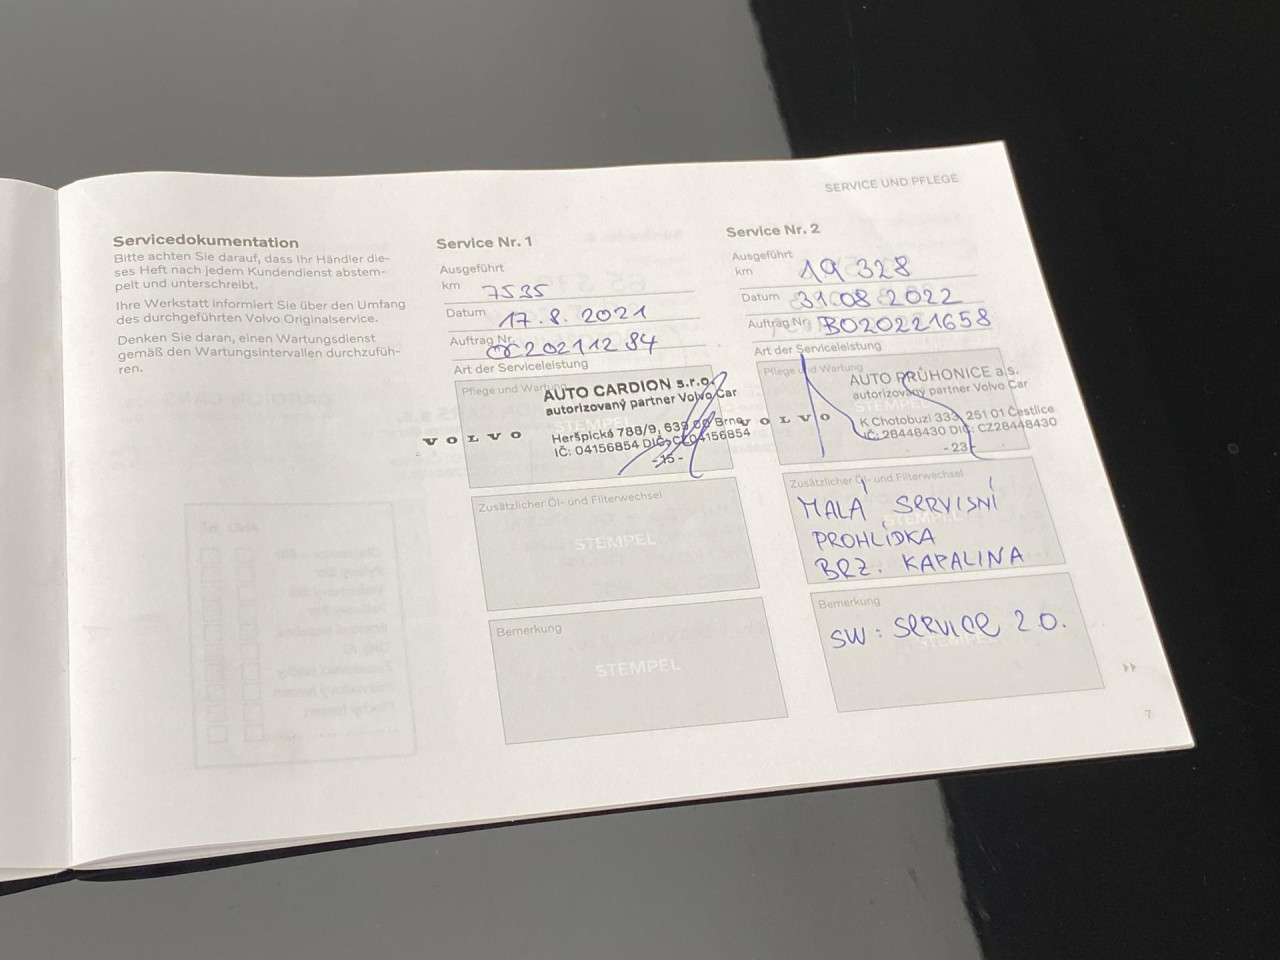 SERVICE UND PFLEGE
Servicedokumentation
Bitte achten Sie darauf, dass Ihr Händler die-
ses Heft nach jedem Kundendienst abstem-
pelt und unterschreibt.
Ihre Werkstatt informiert Sie über den Umfang
des durchgeführten Volvo Originalservice.
Denken Sie daran, einen Wartungsdienst
gemäß den Wartungsintervallen durchzufüh-
ren.
Service Nr. 1
Ausgeführt
km 7535
Datum 17.8.2021
Auftrag Nr. OC20211284
Art der Serviceleistung
Pflege und Wartung
AUTO CARDION s.r.o.
autorizovaný partner Volvo Car
VOLVO
Heršpická 788/9, 639 00 Brno
IČ: 04156854 DIČ: CZ04156854
-15-
Zusätzlicher Öl- und Filterwechsel
STEMPEL
Bemerkung
STEMPEL
Service Nr. 2
Ausgeführt
km 19 328
Datum 31 08 2022
Auftrag Nr. BO20221658
Art der Serviceleistung
Pflege und Wartung
AUTO PRŮHONICE a.s.
autorizovaný partner Volvo Car
VOLVO
K Chotobuzi 333, 251 01 Čestlice
IČ: 28448430 DIČ: CZ28448430
-23-
Zusätzlicher Öl- und Filterwechsel
STEMPEL
MALÁ SERVISNÍ
PROHLÍDKA
BRZ. KAPALINA
Bemerkung
STEMPEL
SW: SERVICE 2.0.
7